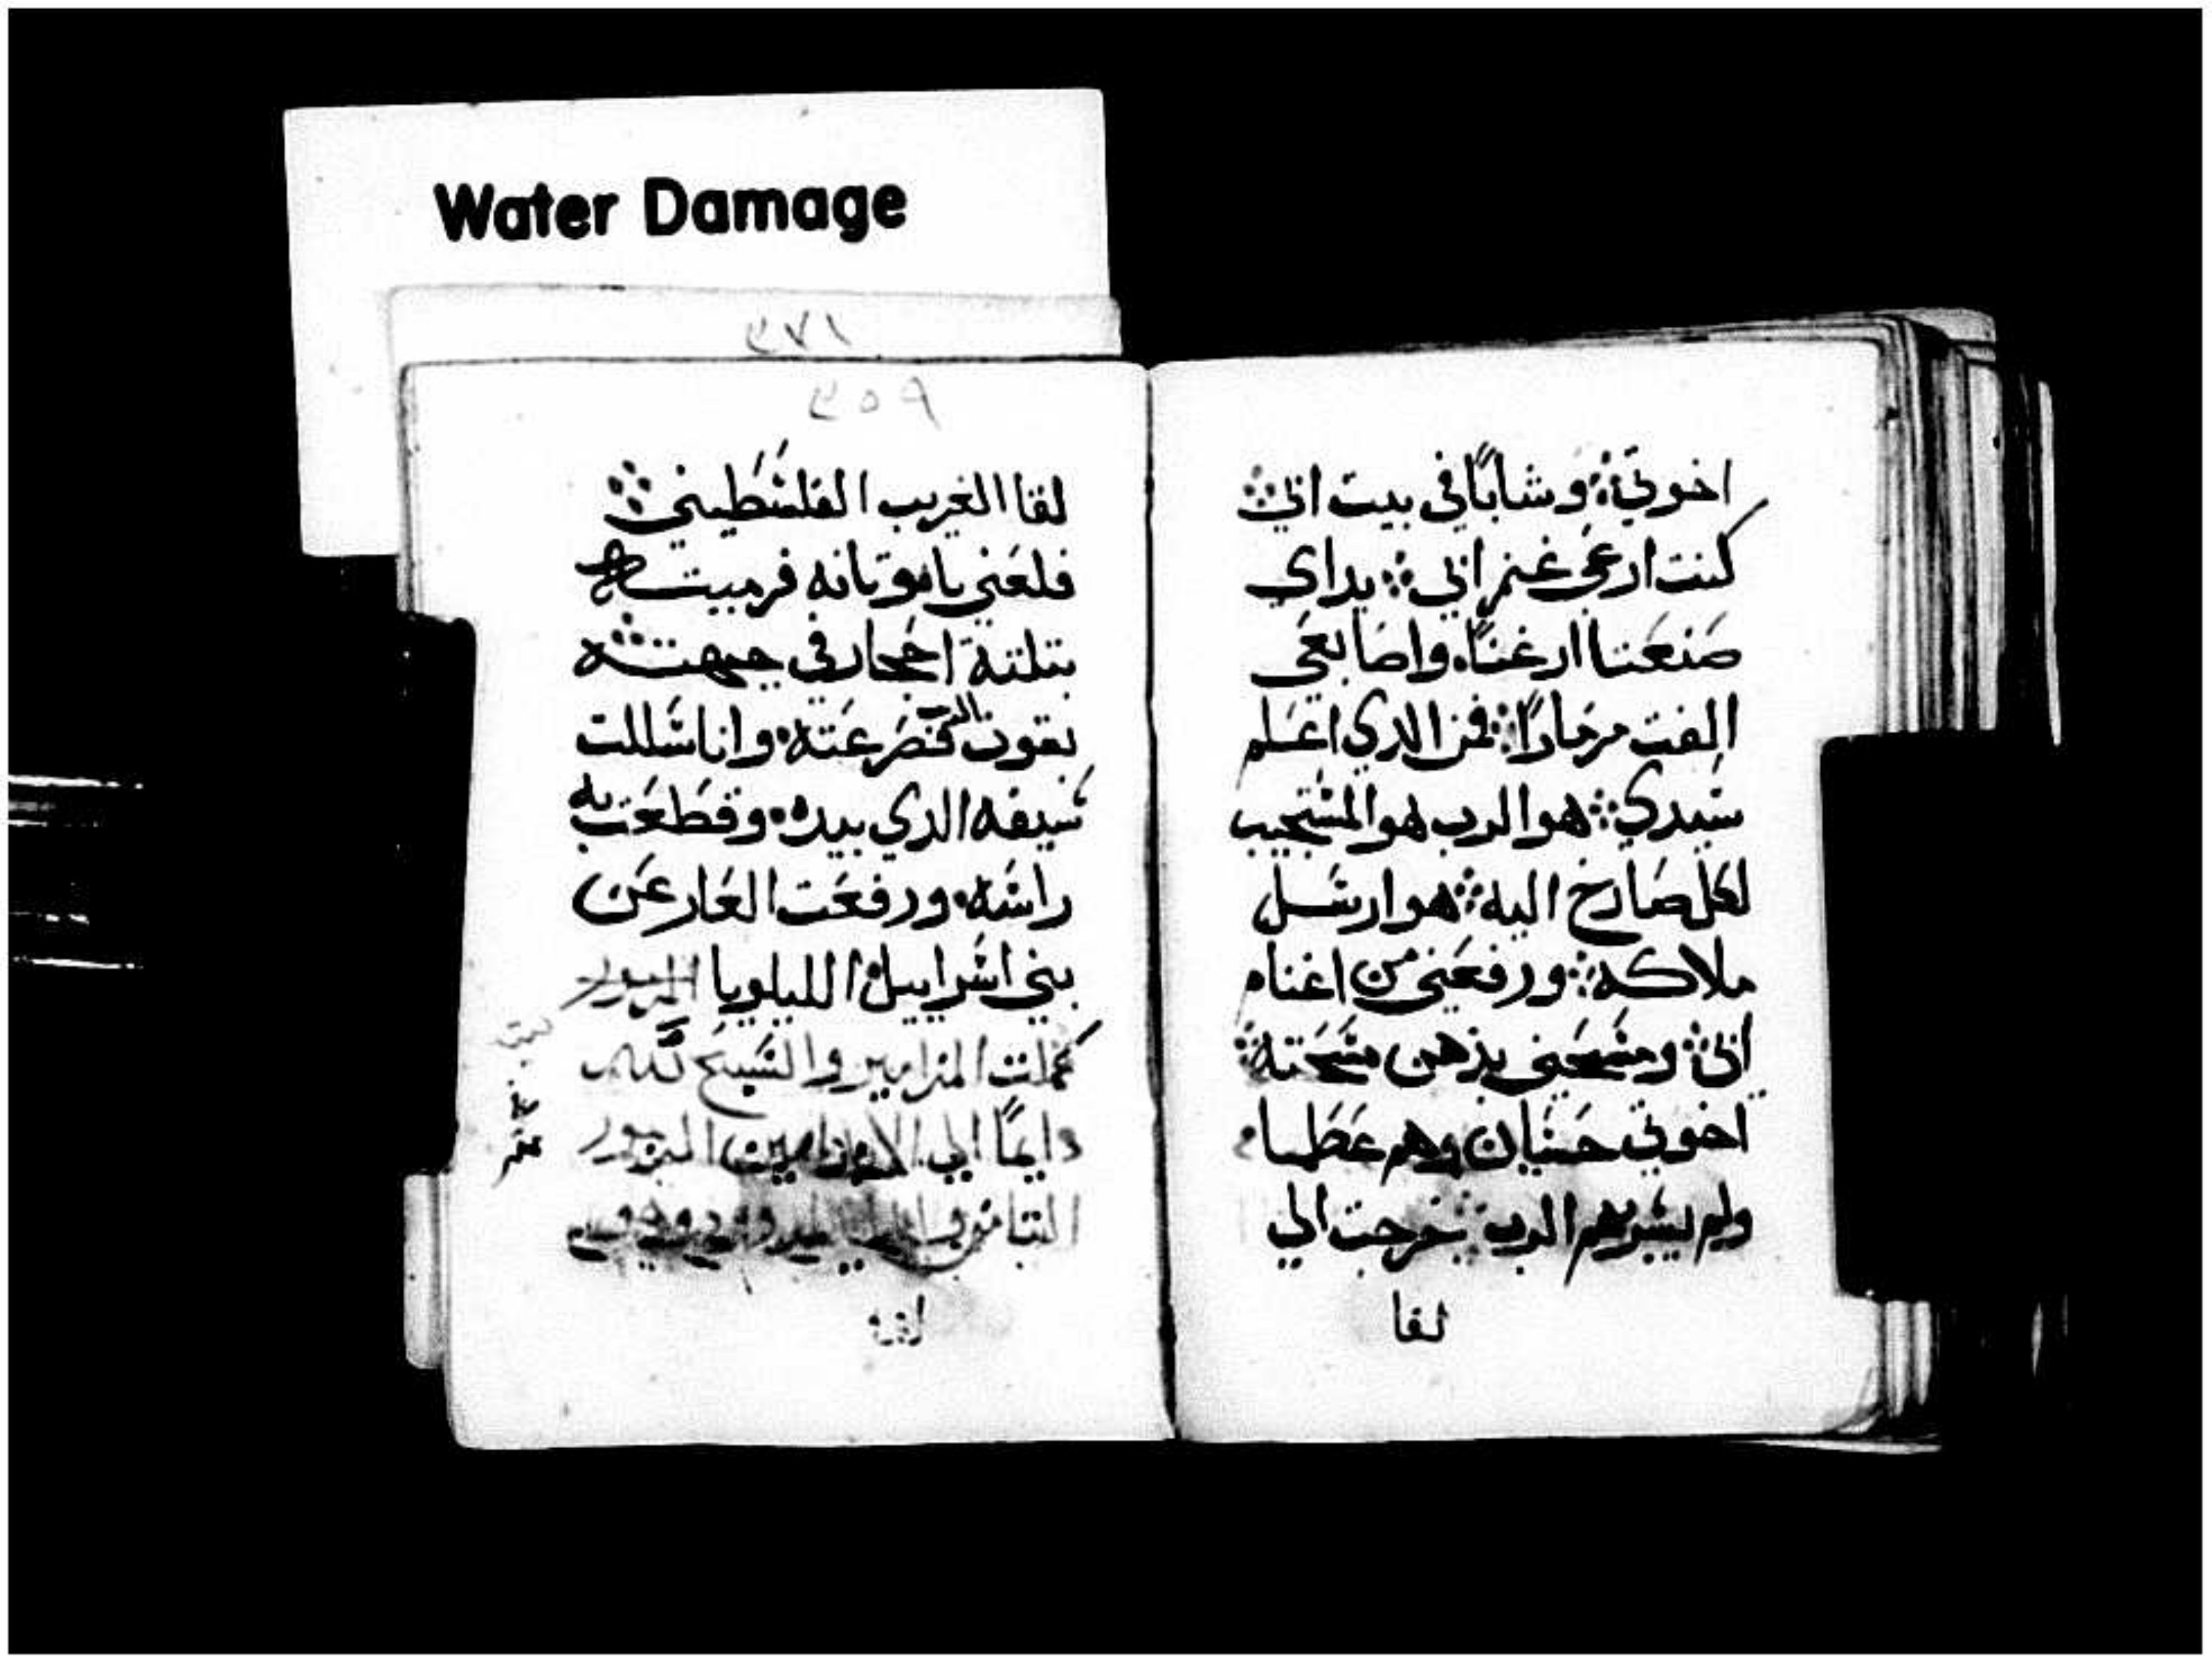 Water Damage
٣٧١
٣٥٩
اخوتي ܀ وشابًا في بيت ابي ܀
كنت ارعي غنم ابي ܀ يداي
صَنعَتا ارغنًا. واصَابعَي
الفت مزمارًا ܀ فمن الدي اعَلم
سَيدي ܀ هوا الرب هوا المسَتجيب
لكل صَارخ اليه ܀ هوا ارسَل
ملاكه ܀ ورفعَني من اغنام
ابي ܀ ومسَحَني بدهن مسَحَته ܀
اخوتي حسَان وهم عَظما.
ولم يسَر بهم الرب خرجت الي
لقا
لقا الغريب الفلسَطيني ܀
فلعَني باموتانه فرميته
بتلتة احَجار في جبهته ܀
بقوت الرب فصَرعَته. وانا سَللت
سَيفه الدي بيده. وقطعَت به
راسَه. ورفعَت العَار عَن
بني اسَراييل. الليلويا المزمور
كملت المزامير والتسَبيح لله
دايمًا الي الابد امين المزمور